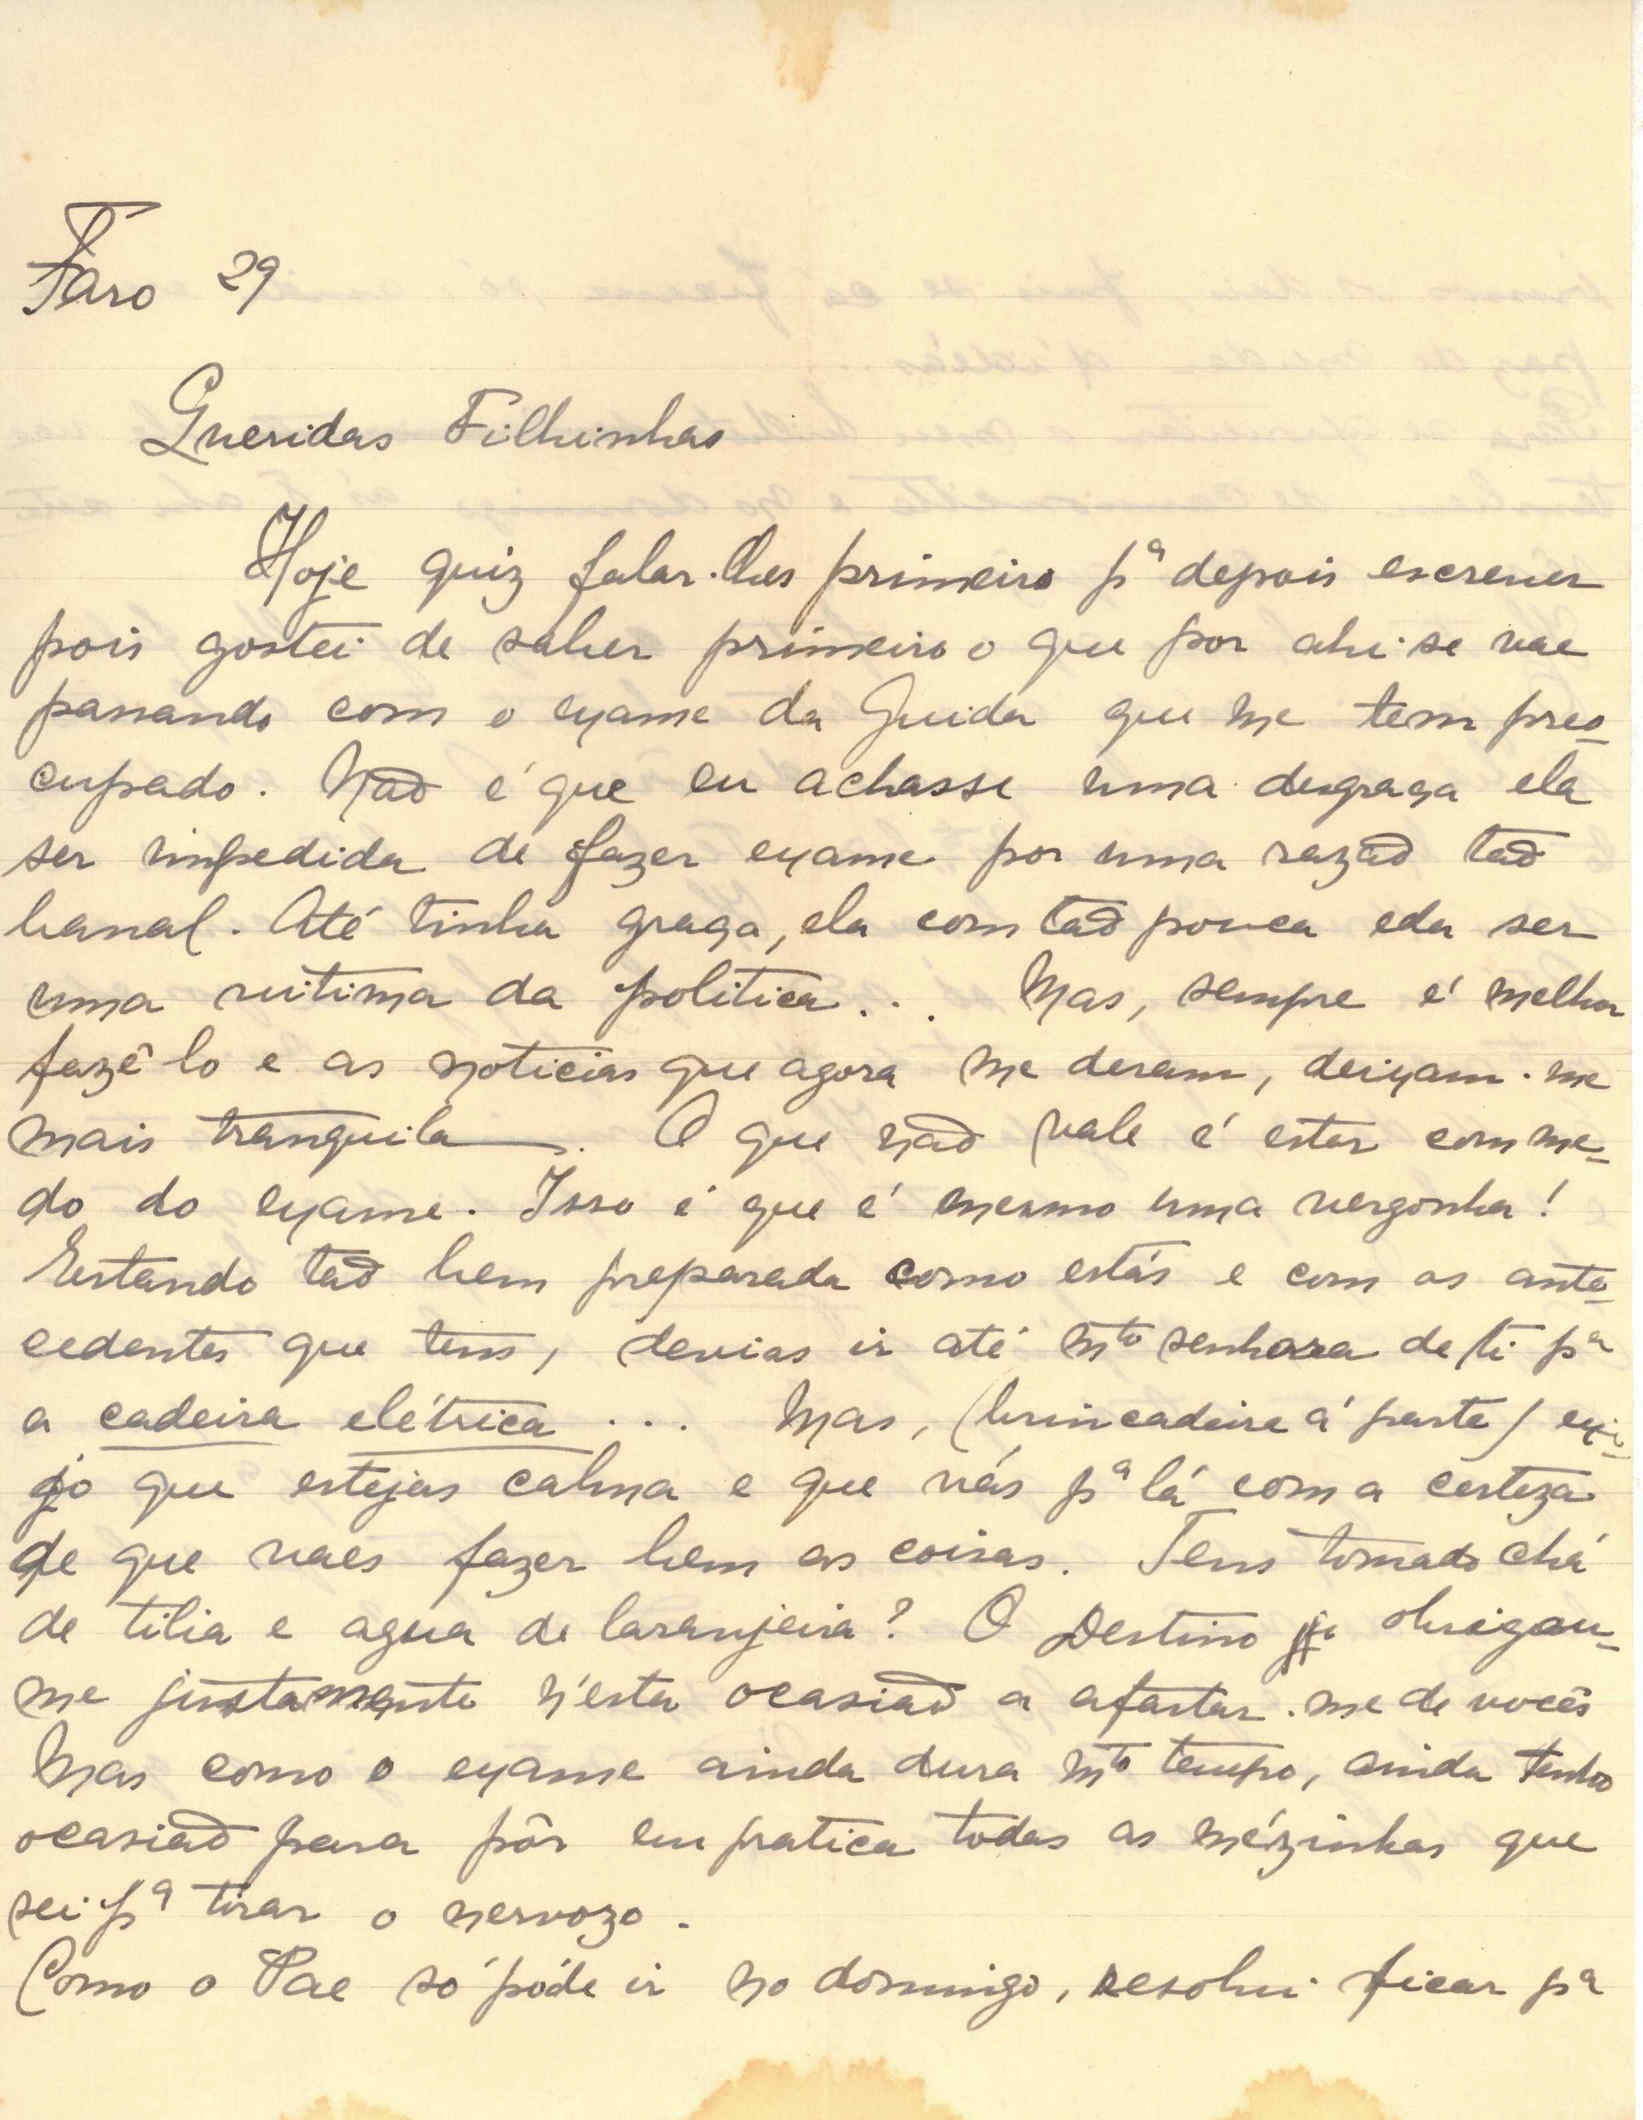 Faro 29
Queridas Filhinhas
Hoje quiz falar-lhes primeiro pª depois escrever
pois gostei de saber primeiro o que por ahi se vae
passando com o exame da Guida que me tem preo-
cupado. Não é que eu achasse uma desgraça ela
ser impedida de fazer exame por uma razão tão
banal. Até tinha graça, ela com tão pouca eda ser
uma vitima da politica... Mas, sempre é melhor
fazê-lo e as noticias que agora me deram, deixam-me
mais tranquila. O que não vale é estar com me-
do do exame. Isso é que é mesmo uma vergonha!
Estando tão bem preparada como estás e com os ante-
cedentes que tens, devias ir até mto senhora de ti pª
a cadeira elétrica ... Mas, (brincadeira á parte) exi-
jo que estejas calma e que vás pª lá com a certeza
de que vaes fazer bem as coisas. Tens tomado chá
de tilia e agua de laranjeira? O Destino obrigou-
me justamente n'esta ocasião a afastar-me de vocês
Mas como o exame ainda dura mto tempo, ainda tenho
ocasião para pôr em pratica todas as mézinhas que
sei pª tirar o nervozo.
Como o Pae só póde ir no domingo, resolvi ficar pª